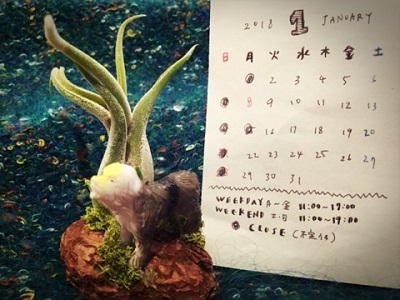 2018 1 JANUARY
日 月 火 水 木 金 土
2 3 4 5 6
8 9 10 11 12 13
16 17 18 19 20
22 23 24 25 26 27
29 30 31
WEEKDAY 月~金 11:00~19:00
WEEKEND 土.日 11:00~19:00
CLOSE (不定休)